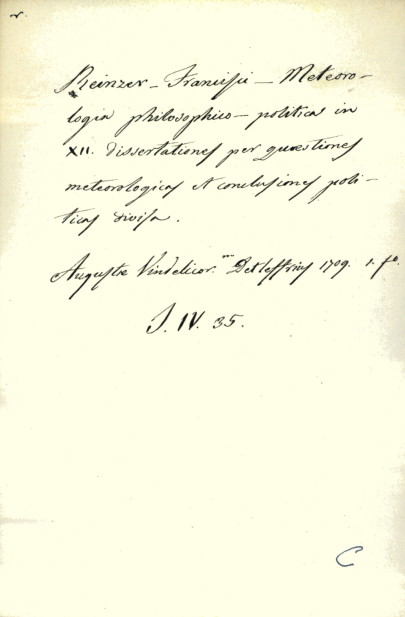 r.
Reinzer – Francisci – Meteoro-
logia philosophico – politica in
XII. dissertationes per quæstiones
meteorologicas et conclusiones poli-
ticas divisa.
Augustæ Vindelicor. Detleffsius 1709. 1. fo.
J. IV. 35.
C